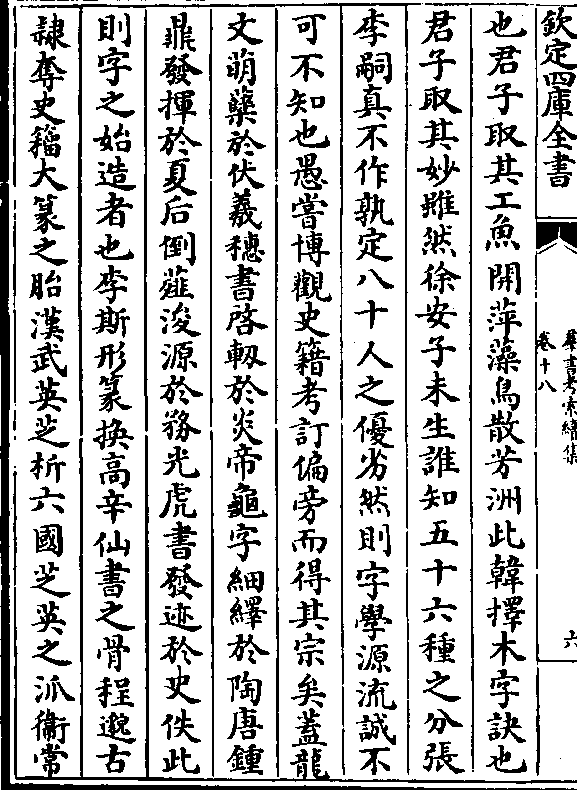 欽定四庫全書
羣書考索續集
卷十八
六
也君子取其工魚開萍藻鳥散芳洲此韓擇木字訣也
君子取其妙雖然徐安子未生誰知五十六種之分張
李嗣真不作孰定八十人之優劣然則字學源流誠不
可不知也愚嘗博觀史籍考訂偏旁而得其宗矣蓋龍
文萌蘖於伏羲穗書啓軔於炎帝龜字細繹於陶唐鍾
鼎發揮於夏后倒薤浚源於務光虎書發迹於史佚此
則字之始造者也李斯形篆換高辛仙書之骨程邈古
隸奪史籀大篆之胎漢武英芝析六國芝英之派衞常